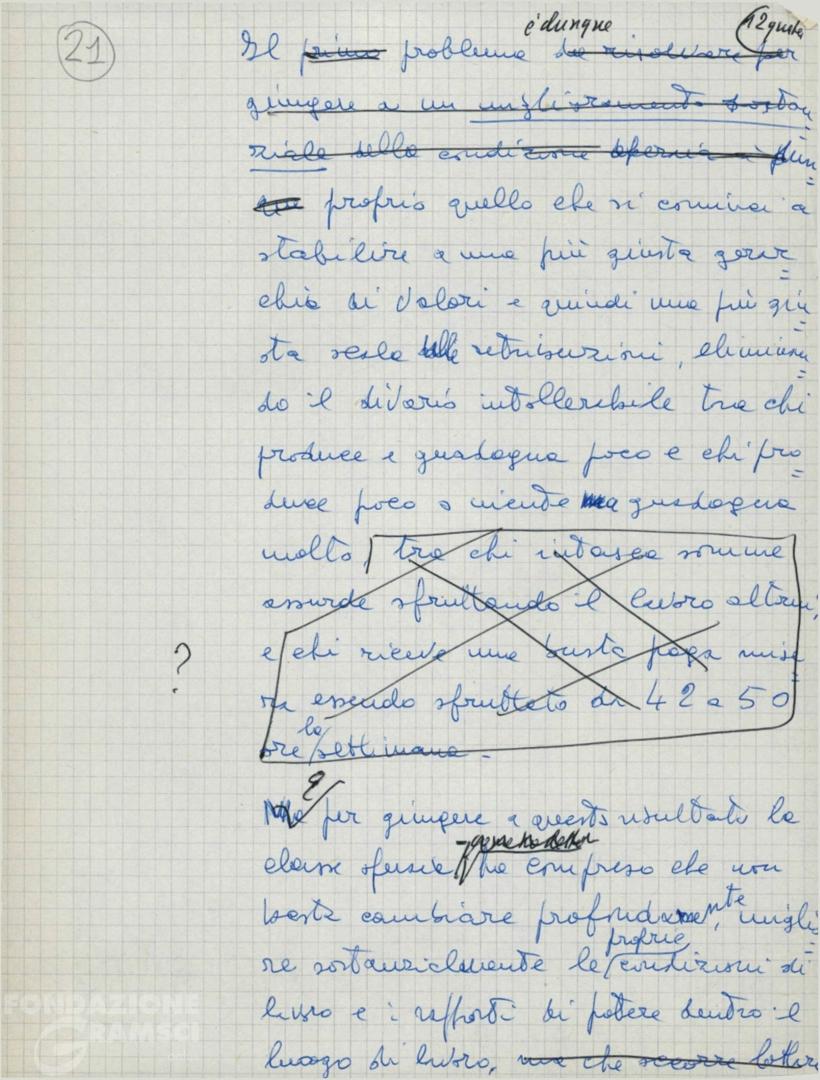 21
è dunque
Il primo problema da risolvere per
giungere a un miglioramento sostan=
ziale della condizione operaia è dun=
que proprio quello che si cominci a
stabilire a una più giusta gerar=
chia di valori e quindi una più giu=
sta scala delle retribuzioni, eliminan=
do il divario intollerabile tra chi
produce e guadagna poco e chi pro=
duce poco o niente ma guadagna
molto, tra chi intasca somme
assurde sfruttando il lavoro altrui,
e chi riceve una busta paga mise=
?
ra essendo sfruttato da 42 a 50
ore la settimana.
Ma per giungere a questo risultato la
classe operaia ha compreso che non
basta cambiare profondamente, miglio=
re sostanzialmente le proprie condizioni di
lavoro e i rapporti di potere dentro il
luogo di lavoro, ma che occorre lottare
FONDAZIONE
GRAMSCI